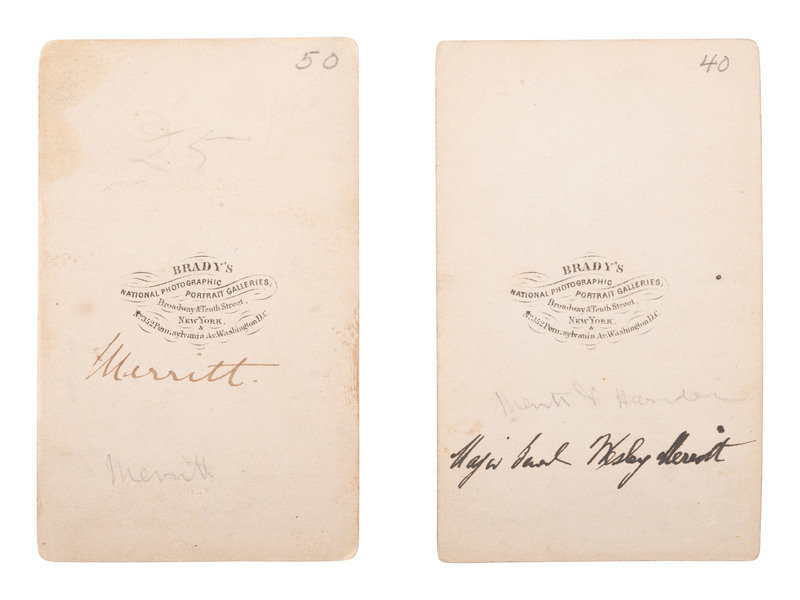 50
BRADY'S
NATIONAL PHOTOGRAPHIC
PORTRAIT GALLERIES,
Broadway & Tenth Street,
NEW YORK
&
No 352 Pennsylvania Av. Washington D.C.
Merritt.
Merritt
40
BRADY'S
NATIONAL PHOTOGRAPHIC
PORTRAIT GALLERIES,
Broadway & Tenth Street,
NEW YORK
&
No 352 Pennsylvania Av. Washington D.C.
Major Wesley Merritt